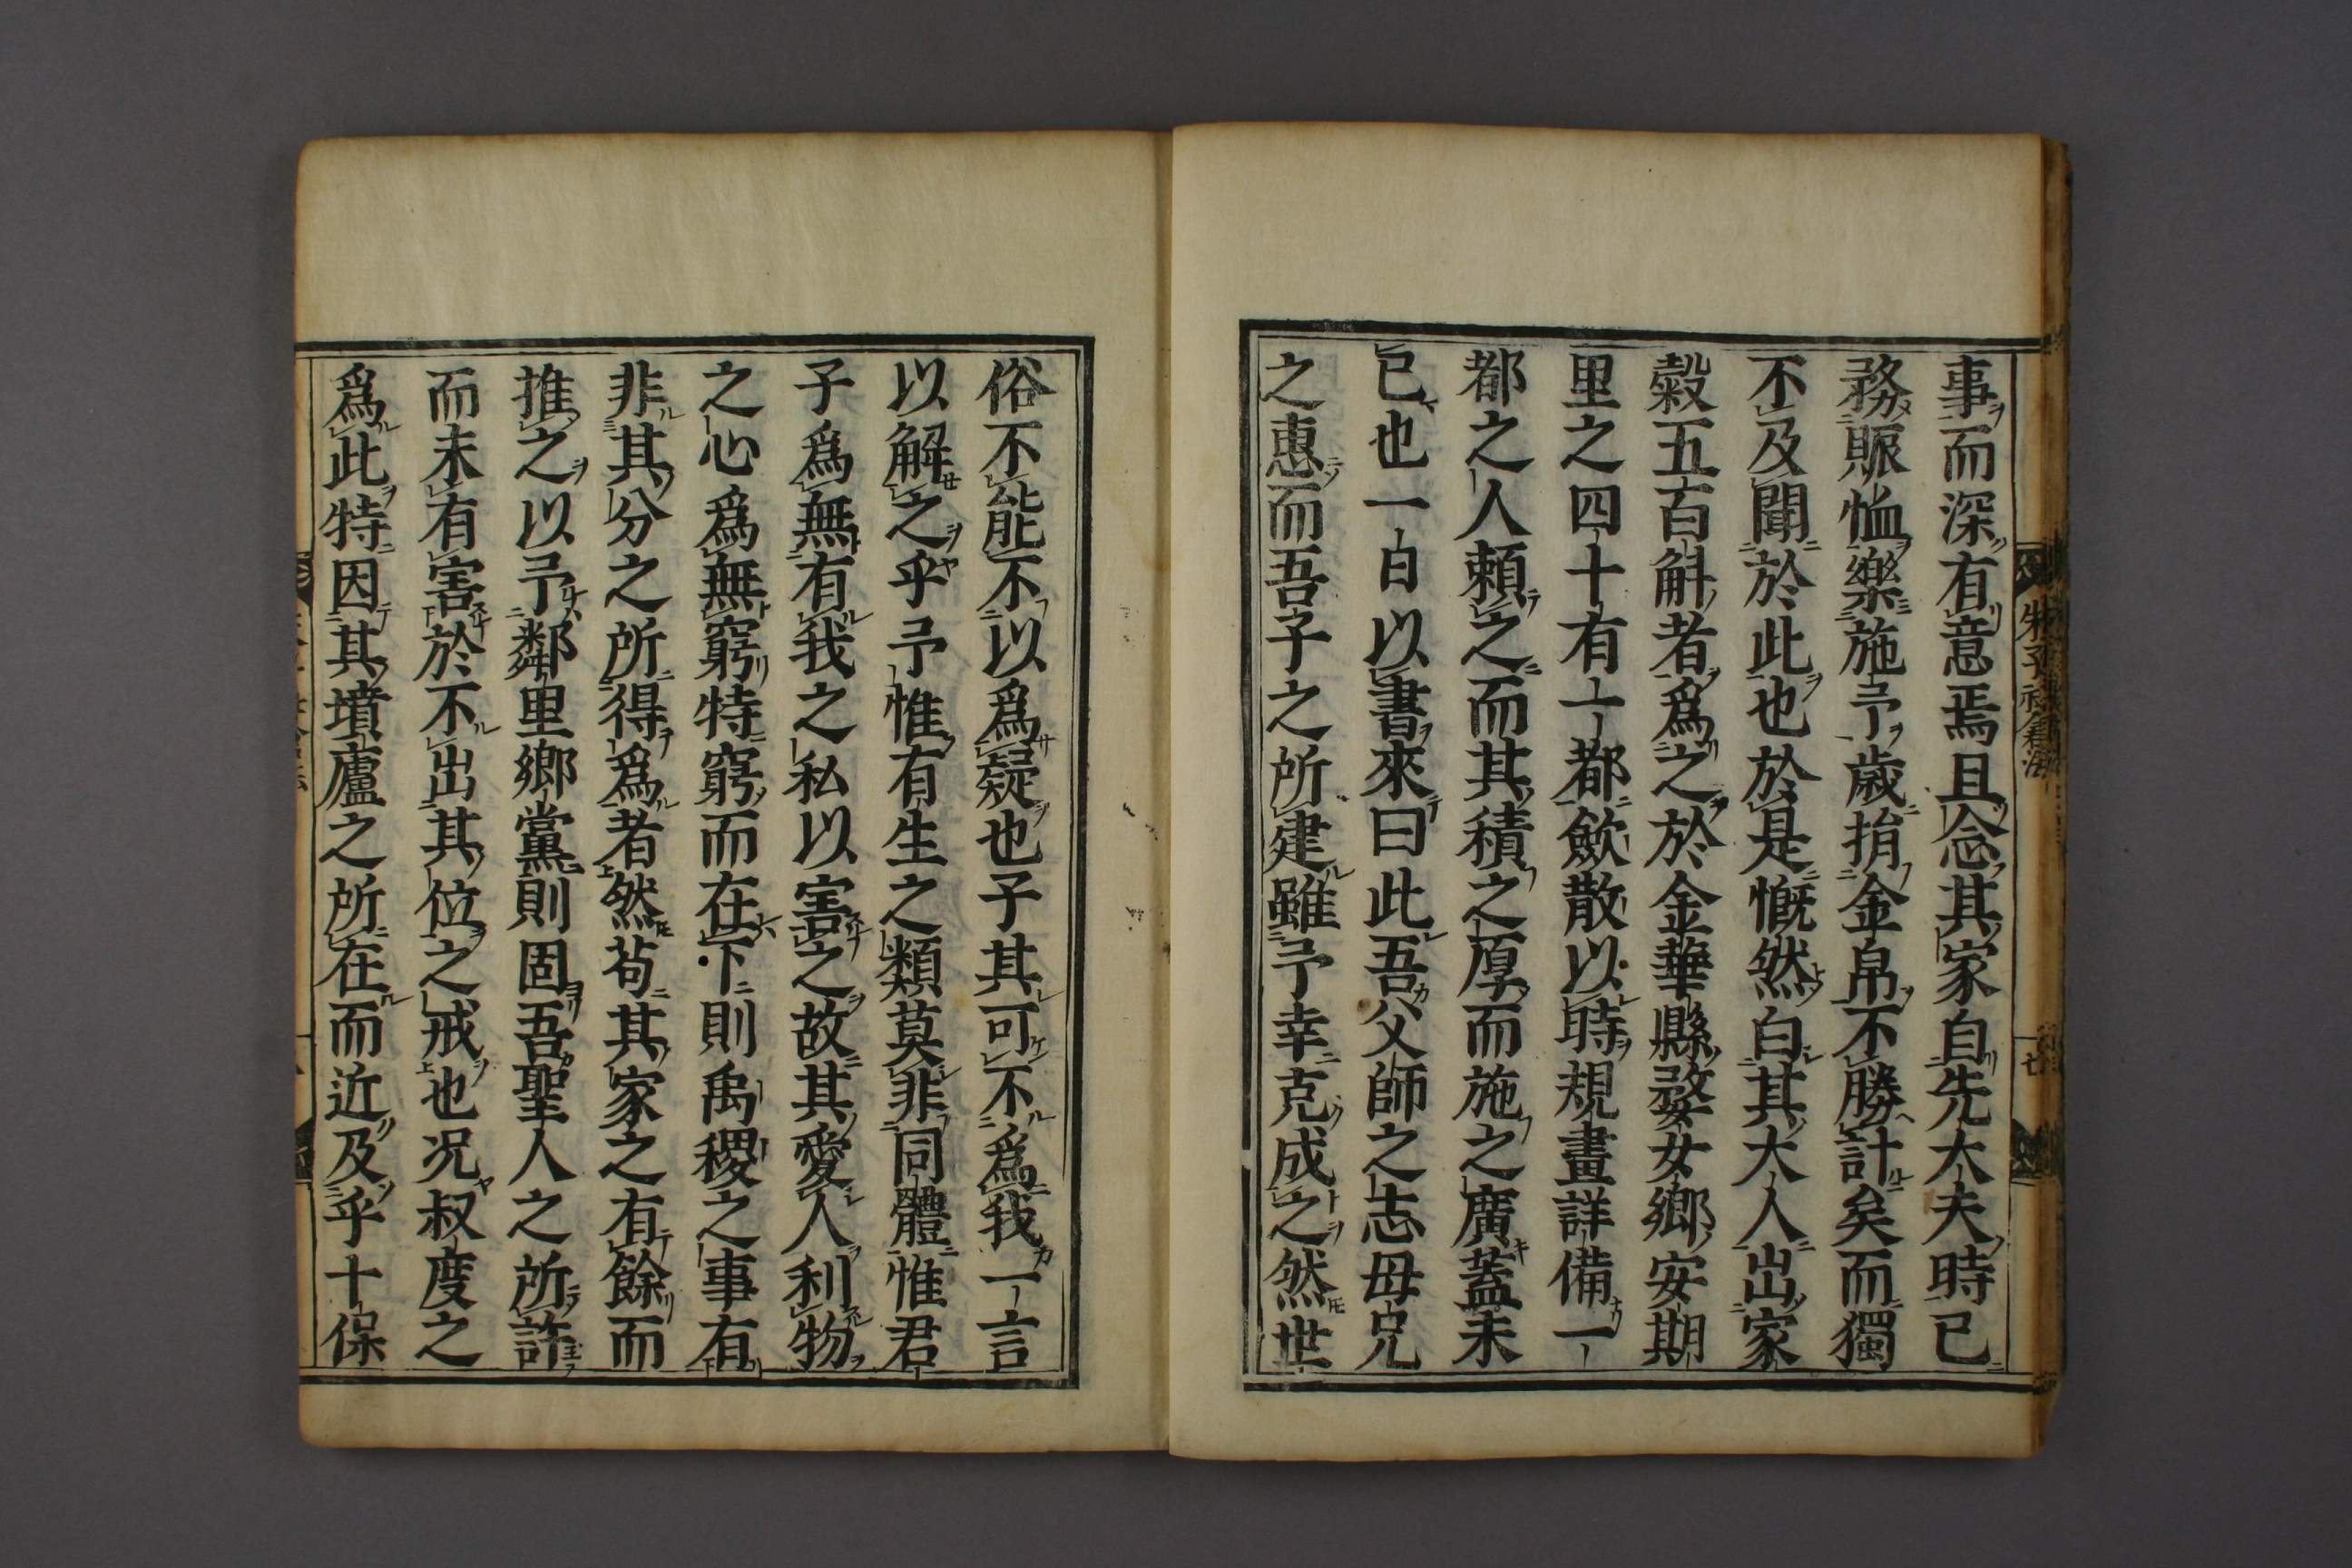 事而深有意焉且念其家自先大夫時已
務賑恤樂施予歲捐金帛不勝計矣而獨
不及聞於此也於是慨然白其大人出家
穀五百斛者爲之於金華縣婺女鄉安期
里之四十有一都歛散以時規畫詳備一
都之人賴之而其積之厚而施之廣蓋未
已也一日以書來曰此吾父師之志母兄
之惠而吾子之所建雖予幸克成之然世
俗不能不以爲疑也子其可不爲我一言
以解之乎予惟有生之類莫非同體惟君
子爲無有我之私以害之故其愛人利物
之心爲無窮特窮而在下則禹稷之事有
非其分之所得爲者然苟其家之有餘而
推之以予鄰里鄉黨則固吾聖人之所許
而未有害於不出其位之戒也况叔度之
爲此特因其墳廬之所在而近及乎十保